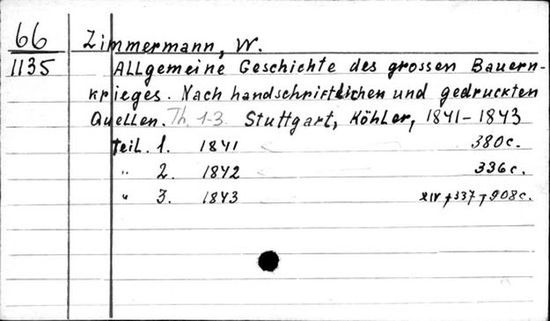 66 Zimmermann, W.
1135 Allgemeine Geschichte des grossen Bauern-
krieges. Nach handschriftlichen und gedruckten
Quellen. Th. 1-3. Stuttgart, Köhler, 1841-1843
Teil. 1. 1841 380c.
" 2. 1842 336c.
" 3. 1843 XIV+337-908c.